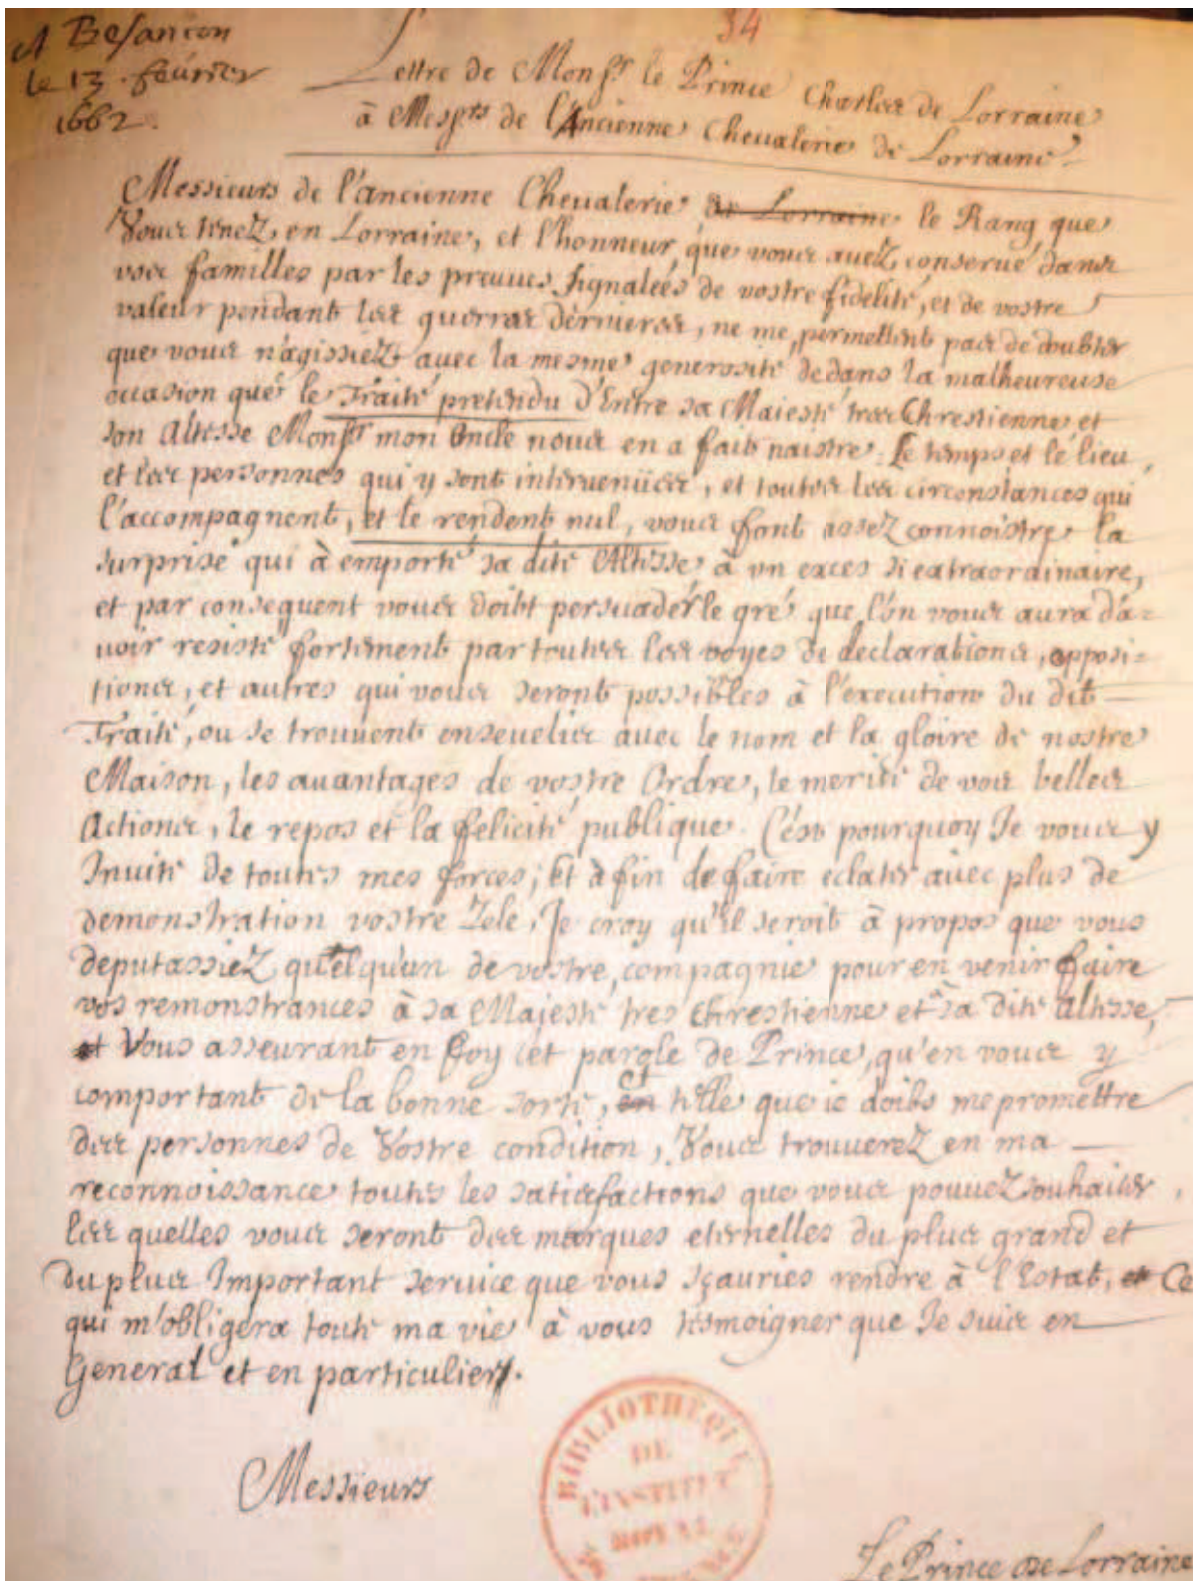 34
A Besancon
le 13. feurier
1662.
Lettre de Monsr. le Prince Charles de Lorraine
à Messrs de l'Ancienne Cheualerie de Lorraine
Messieurs de l'ancienne Cheualerie de Lorraine le Rang que
Vous tenez en Lorraine, et l'honneur que vous auez conserué dans
vos familles par les preuues signalées de vostre fidelité, et de vostre
valeur pendant les guerres dernieres, ne me permettent pas de doubter
que vous n'agissiez auec la mesme generosité dedans la malheureuse
occasion que le Traité pretendu d'Entre sa Maiesté tres Chrestienne et
son Altesse Monsr mon Oncle nous en a fait naistre. Le temps et le lieu,
et les personnes qui y sont interuenües, et toutes les circonstances qui
l'accompagnent, et le rendent nul, vous font assez connoistre la
surprise qui à emporté sa dite Altesse à vn exces si extraordinaire,
et par consequent vous doibt persuader le gré que l'on vous aura d'a=
uoir resisté fortement par toutes les voyes de declarations, opposi=
tions, et autres qui vous seront possibles à l'execution du dit
Traité, ou se trouuent enseuelis auec le nom et la gloire de nostre
Maison, les auantages de vostre Ordre, le merite de vos belles
Actions, le repos et la felicité publique. C'est pourquoy Je vous y
Inuite de toutes mes forces; Et à fin de faire eclater auec plus de
demonstration vostre Zele, Je croy qu'il seroit à propos que vous
deputassiez quelqu'un de vostre compagnie pour en venir faire
vos remonstrances à sa Majesté tres Chrestienne et à sa dite Altesse,
et Vous asseurant en foy et parole de Prince, qu'en vous y
comportant de la bonne sorte, en et telle que ie doibs me promettre
des personnes de Vostre condition, Vous trouuerez en ma
reconnoissance toutes les satisfactions que vous pouuez souhaiter,
les quelles vous seront des marques eternelles du plus grand et
du plus Important seruice que vous sçauries rendre à l'Estat, et Ce
qui m'obligera toute ma vie à vous tesmoigner que Je suis en
General et en particulier.
Messieurs
BIBLIOTHEQUE
DE
L'INSTITUT
Le Prince de Lorraine